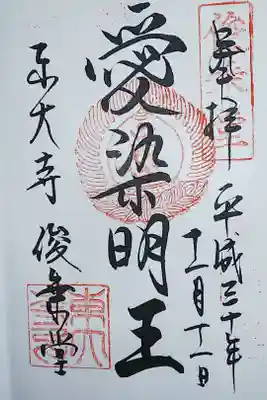 奉拝 平成三十年
十一月十一日
愛染明王
東大寺 俊乗堂